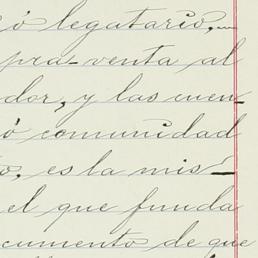 ó legatario,
pra-venta al
dor, y las cuen-
ó comunidad
o, es la mis-
el que funda
cumento de que